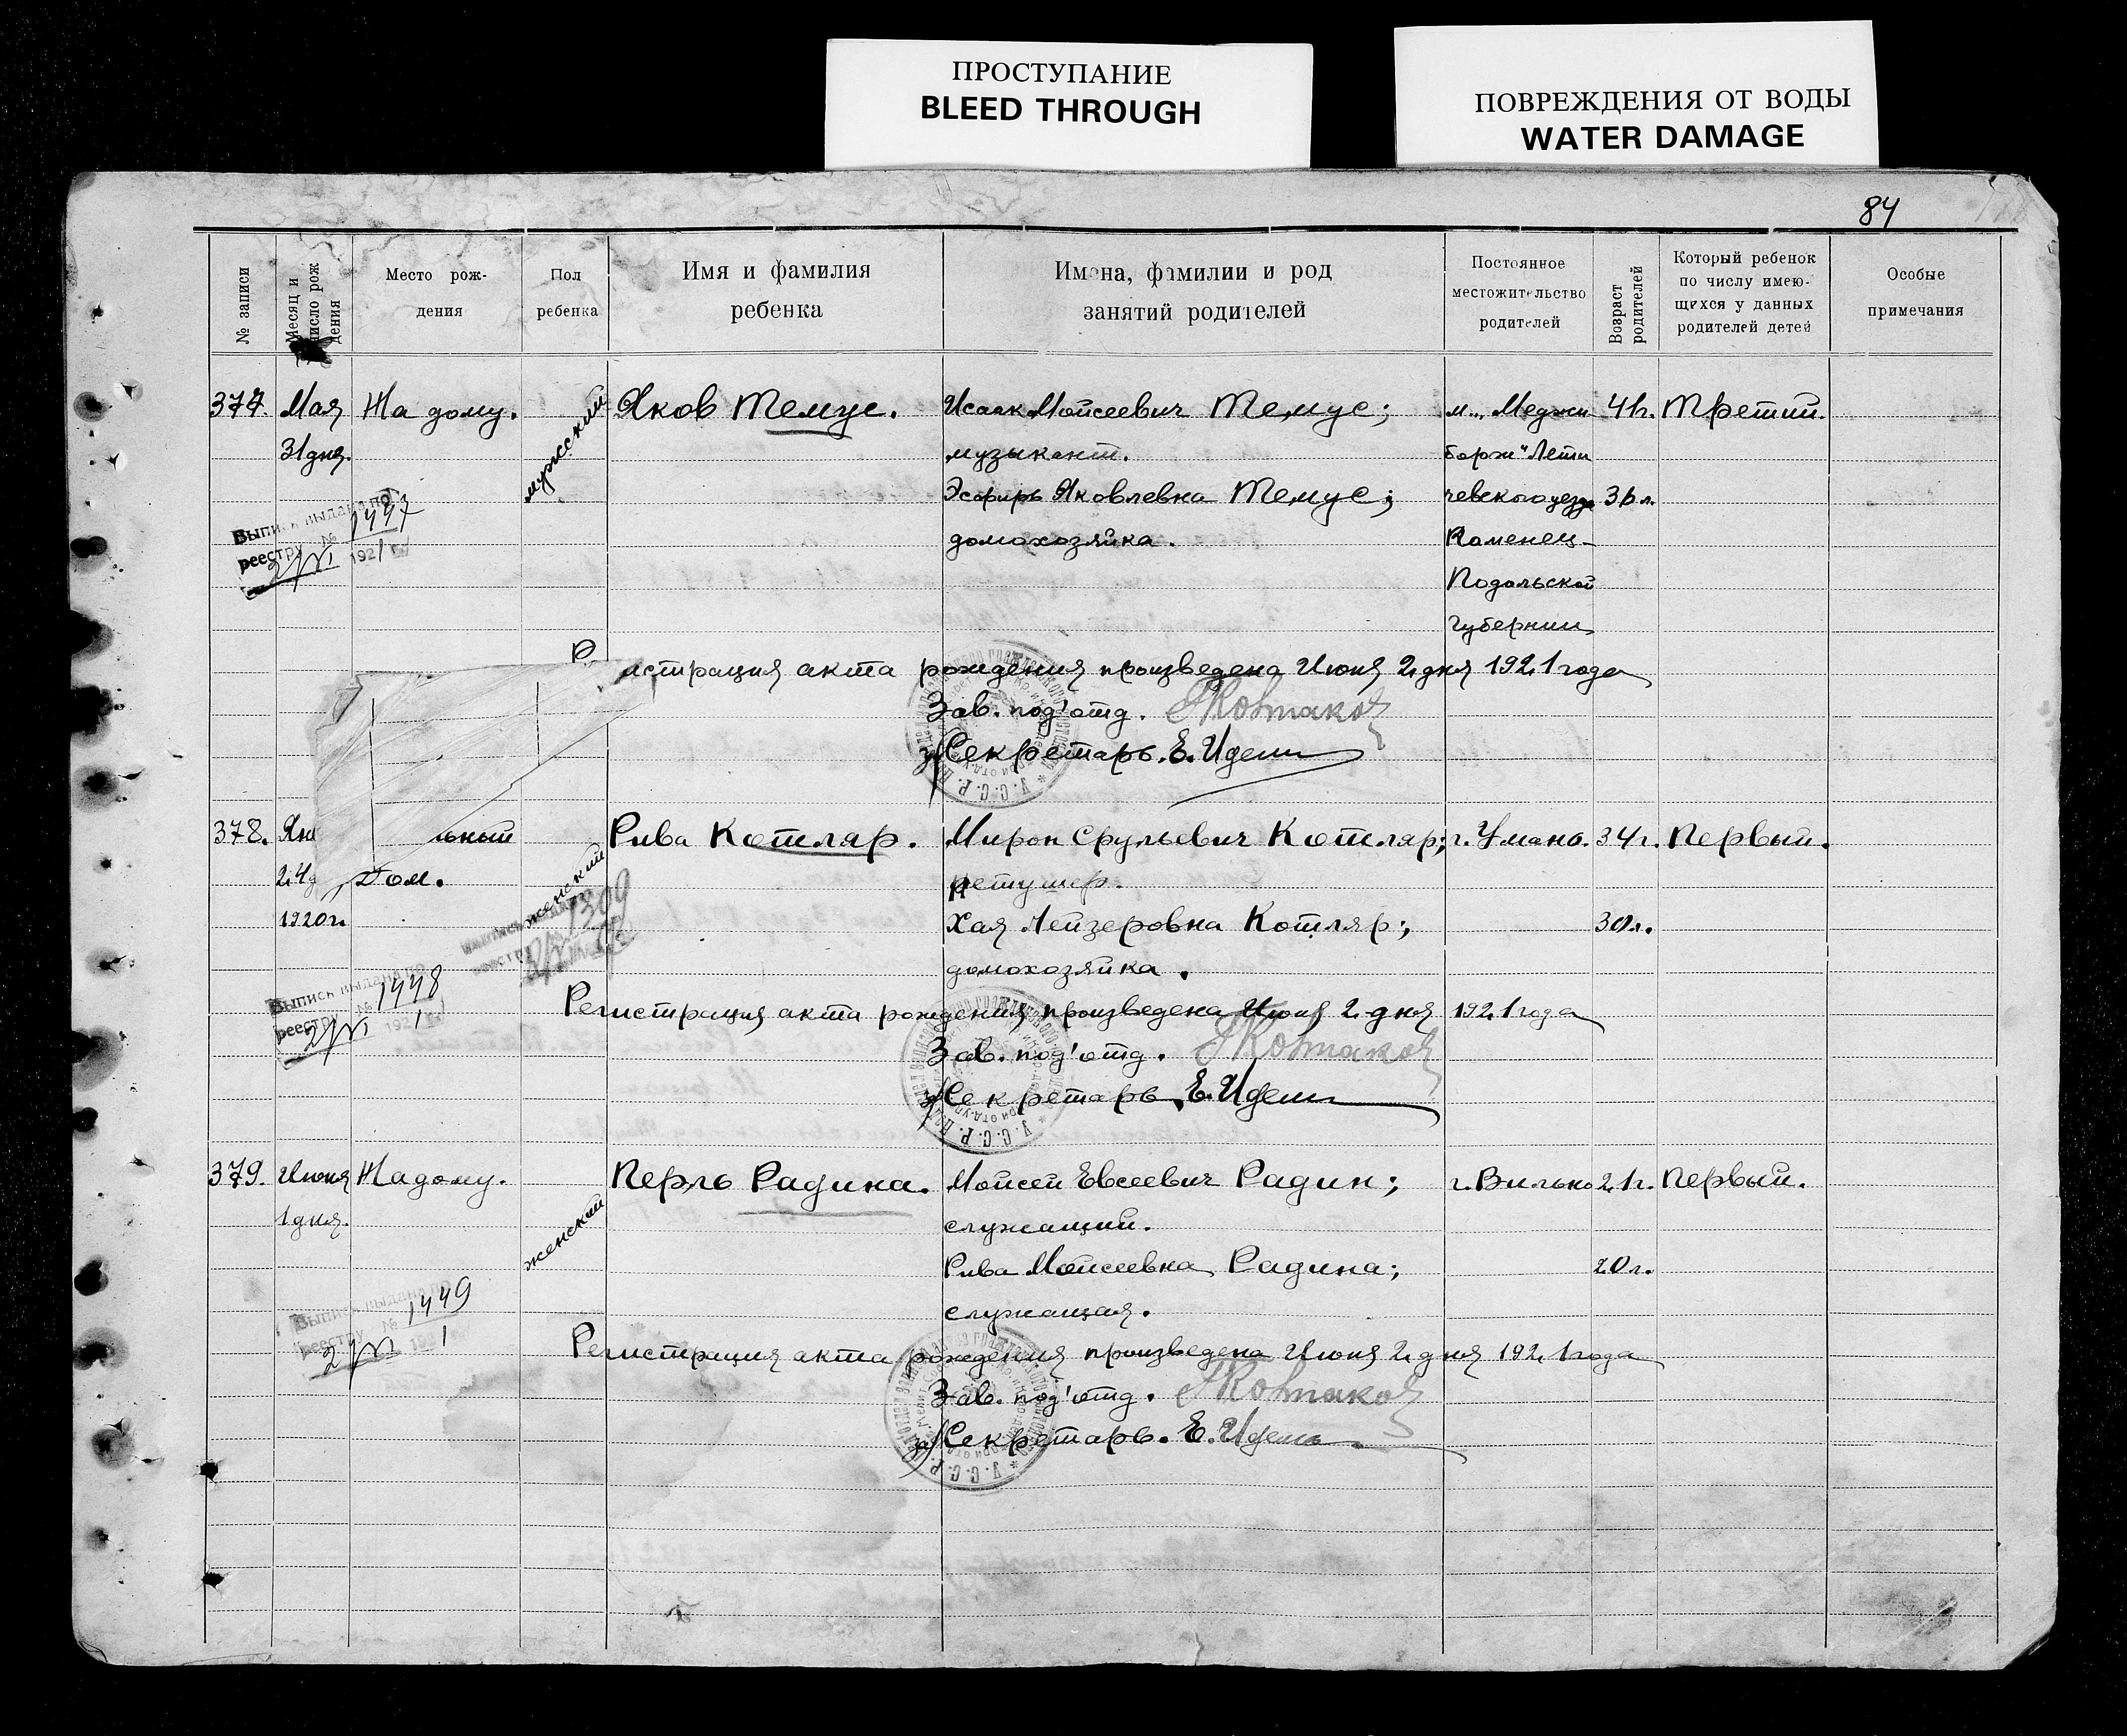 ПРОСТУПАНИЕ
BLEED THROUGH
ПОВРЕЖДЕНИЯ ОТ ВОДЫ
WATER DAMAGE
84
№ записи
Месяц и число рождения
Место рож-
дения
Пол
ребенка
Имя и фамилия
ребенка
Имена, фамилии и род
занятий родителей
Постоянное
местожительство
родителей
Возраст
родителей
Который ребенок
по числу имею-
щихся у данных
родителей детей
Особые
примечания
377. Мая На дому. мужеский Яков Темус. Исаак Моисеевич Темус; м. „Меджи 41г. Третий.
31 дня. музыкант. борж" Лети
Эсфирь Яковлевна Темус; чевского уезда 36 л.
домохозяйка. Каменец-
Подольской
губернии
Выпись выдана по
реестру № 1447
2/VI 1921
Регистрация акта рождения произведена Июня 2 дня 1921 года
Зав. под'отд.
з/Секретарь. Е. Идель
378. льный женский Рива Котляр. Мирон Срульевич Котляр; г. Умань. 34 г. Первый.
24 Дом. ретушер.
1920 г. Хая Лейзеровна Котляр; 30 л.
домохозяйка.
1309
Выпись выдана по
реестру № 1448
2/VI 1921
Регистрация акта рождения произведена Июня 2 дня 1921 года
Зав. под'отд.
з/Секретарь Е. Идель
379. Июня На дому. женский Перль Радина. Мойсей Евсеевич Радин; г. Вильно 21 г. Первый.
1 дня. служащий.
Рива Мойсеевна Радина; 20 л.
служащая.
Выпись выдана по
реестру № 1449
2/VI 1921
Регистрация акта рождения произведена Июня 2 дня 1921 года
Зав. под'отд.
з/Секретарь. Е. Идель